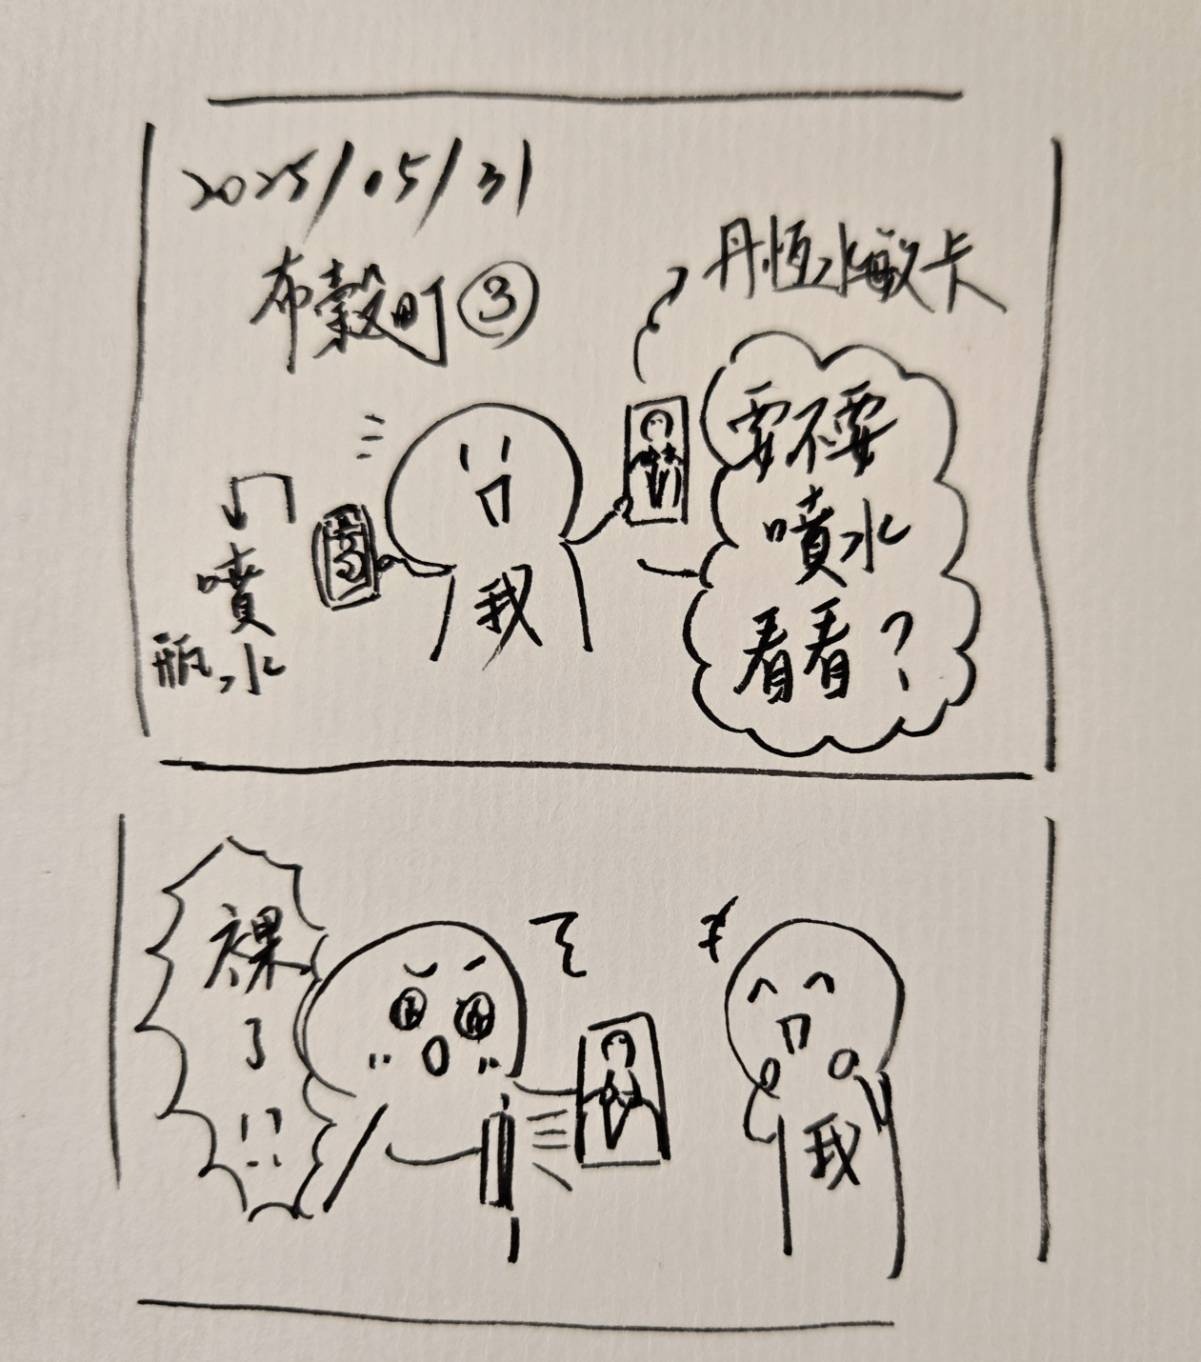 2025/05/31
布穀町③
丹恆水敏卡
要不要
噴水
看看?
噴水
瓶
我
裸了!?
我